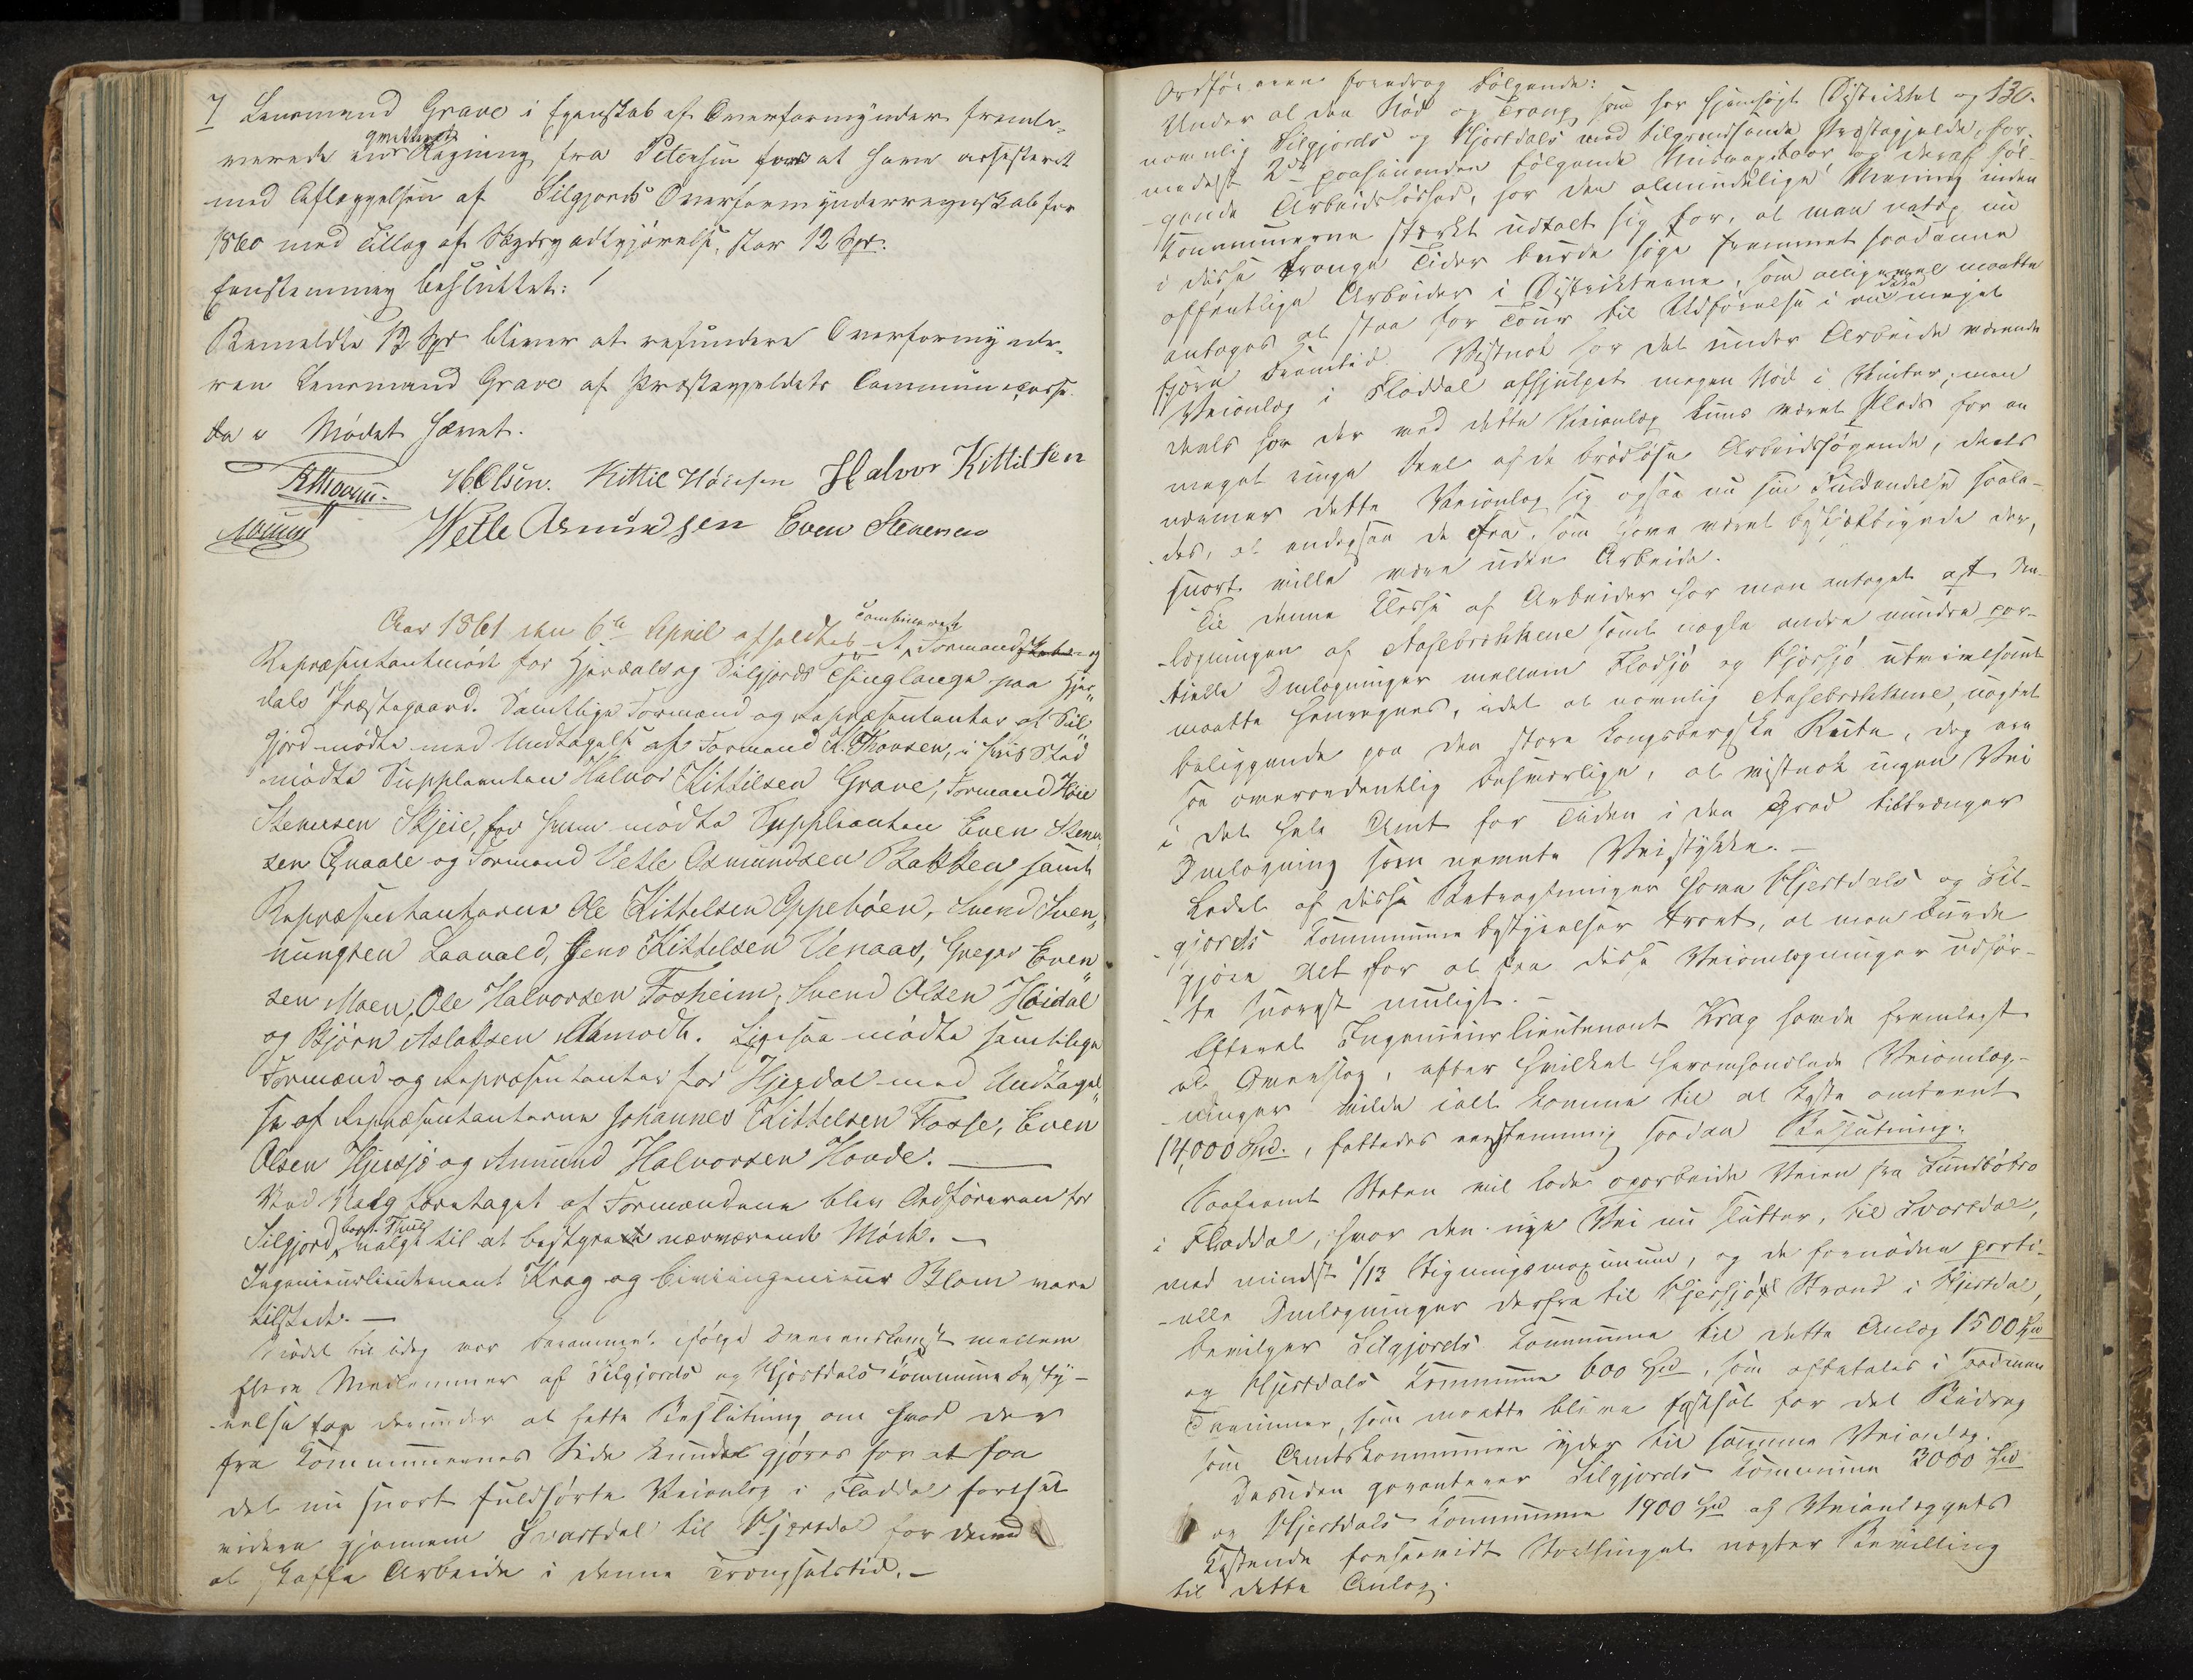 7 Lensmand Grave i Egenskab af Overformynder fremle-
qvitteret
verede en Regning fra Petersen for at have assisteret
med Aflæggelsen af Silgjords Overformynderregnskab for
1860 med Tillæg af Skydsgodtgjørelse, stor 12 Spd.
Eenstemmig besluttet:
Bemeldte 12 Spd bliver at refundere Overformynde-
ren Lensmand Grave af Præstegjeldets Communecasse.
Da er Mødet hævet.
H Olsen. Kittil Høiesen Halvor Kittilsen
Vetle Asmundsen Even Stenersen
Aar 1861 den 6te April afholdtes et combineret Formandskabs og
Repræsentantmøde for Hjerdals og Silgjords Thinglauge paa Hjer-
dals Præstegaard. Samtlige Formænd og Repræsentanter af Sil-
gjord mødte med Undtagelse af Formand K. Thovsen, i hvis Sted
mødte Suppleanten Halvor Kittilsen Grave, Formand Høie
Stenersen Skjeie, for hvem mødte Suppleanten Even Stener-
sen Qvaale og Formand Vetle Asmundsen Bakken samt
Repræsentanterne Ole Kittelsen Oppebøen, Svend Sven-
nungsen Laavald, Jens Kittelsen Venaas, Gregar Even-
sen Moen, Ole Halvorsen Forheim, Svend Olsen Høidal
og Bjørn Aslaksen Aamodt. Ligesaa mødte samtlige
Formænd og Repræsentanter for Hjerdal med Undtagel-
se af Repræsentanterne Johannes Kittelsen Fosse, Even
Olsen Hjersjø og Amund Halvorsen Hovde.
Ved Valg foretaget af Formændene blev Ordføreren for
Silgjord valgt til at bestyre nærværende Møde. –
Ingenieurlieutenant Krag og Civilingenieur Blom vare
tilstede. –
Mødet til idag var berammet ifølge Overenskomst mellem
flere Medlemmer af Silgjords og Hjertdals Communebesty-
relse for derunder at fatte Beslutning om hvad der
fra Communernes Side kunde gjøres for at faa
det nu snart fuldførte Veianlæg i Fladdal fortsat
videre gjennem Svartdal til Hjertdal for derved
at skaffe Arbeide i denne Trængselstid. –
Ordføreren foredrog Følgende:
130.
Under al den Nød og Trang som har hjemsøgt Distriktet og
navnlig Silgjords og Hjertdals med tilgrændsende Præstegjelde, for-
medelst 2de paahinanden følgende Misvextaar og deraf føl-
gende Arbeidsløshed, har den almindelige Mening inden
Communerne stærkt udtalt sig for, at man netop nu
i disse trange Tider burde søge fremmet saadanne
offentlige Arbeider i Distrikterne, som alligevel maatte
antages at staa for Tour til Udførelse i en ikke meget
fjern Fremtid. Vistnok har det under Arbeide værende
Veianlæg i Fladdal afhjulpet megen Nød i Vinter; men
deels har der ved dette Veianlæg kuns været Plads for en
meget ringe Deel af de brødløse Arbeidssøgende, deels
nærmer dette Veianlæg sig ogsaa nu sin Fuldendelse saale-
des, at endogsaa de Faa, som have været beskjæftigede der,
snart ville være uden Arbeide.
Til denne Klasse af Arbeider har man antaget at Om-
lægningen af Aasebrækkene samt nogle andre mindre par-
tielle Omlægninger mellem Flatsjø og Hjersjø utvivlsomt
maatte henregnes, idet at navnlig Aasebrækkene, uagtet
beliggende paa den store Kongsbergske Route, dog ere
saa overordentlig besværlige, at vistnok ingen Vei
i det hele Amt for Tiden i den Grad tiltrænger
Omlægning som nævnte Veistykke. –
Ledet af disse Betragtninger have Hjertdals og Sil-
gjords Communebestyrelser troet, at man burde
gjøre Alt for at faa disse Veiomlægninger udfør-
te snarest muligt. –
Efterat Ingenieurlieutenant Krag havde fremlagt
et Overslag, efter hvilket heromhandlede Veiomlæg-
ninger vilde ialt komme til at koste omtrent
14,000 Spd., fattedes eenstemmig saadan Beslutning:
Saafremt Staten vil lade oparbeide Veien fra Sundbøbro
i Fladdal, hvor den nye Vei nu slutter, til Svartdal,
med mindst 1/13 Stigningsmaximum, og de fornødne parti-
elle Omlægninger derfra til Hjersjø Strand i Hjertdal,
bevilger Silgjords Commune til dette Anlæg 1500 Spd
og Hjertdals Commune 600 Spd, som afbetales i saadanne
Terminer, som maatte blive fastsat for det Bidrag
som Amtskommunen yder til samme Veianlæg.
Desuden garanterer Silgjords Commune 3000 Spd
og Hjertdals Commune 1900 Spd af Veianlæggets
Kostende forsaavidt Storthinget negter Bevilling
til dette Anlæg.